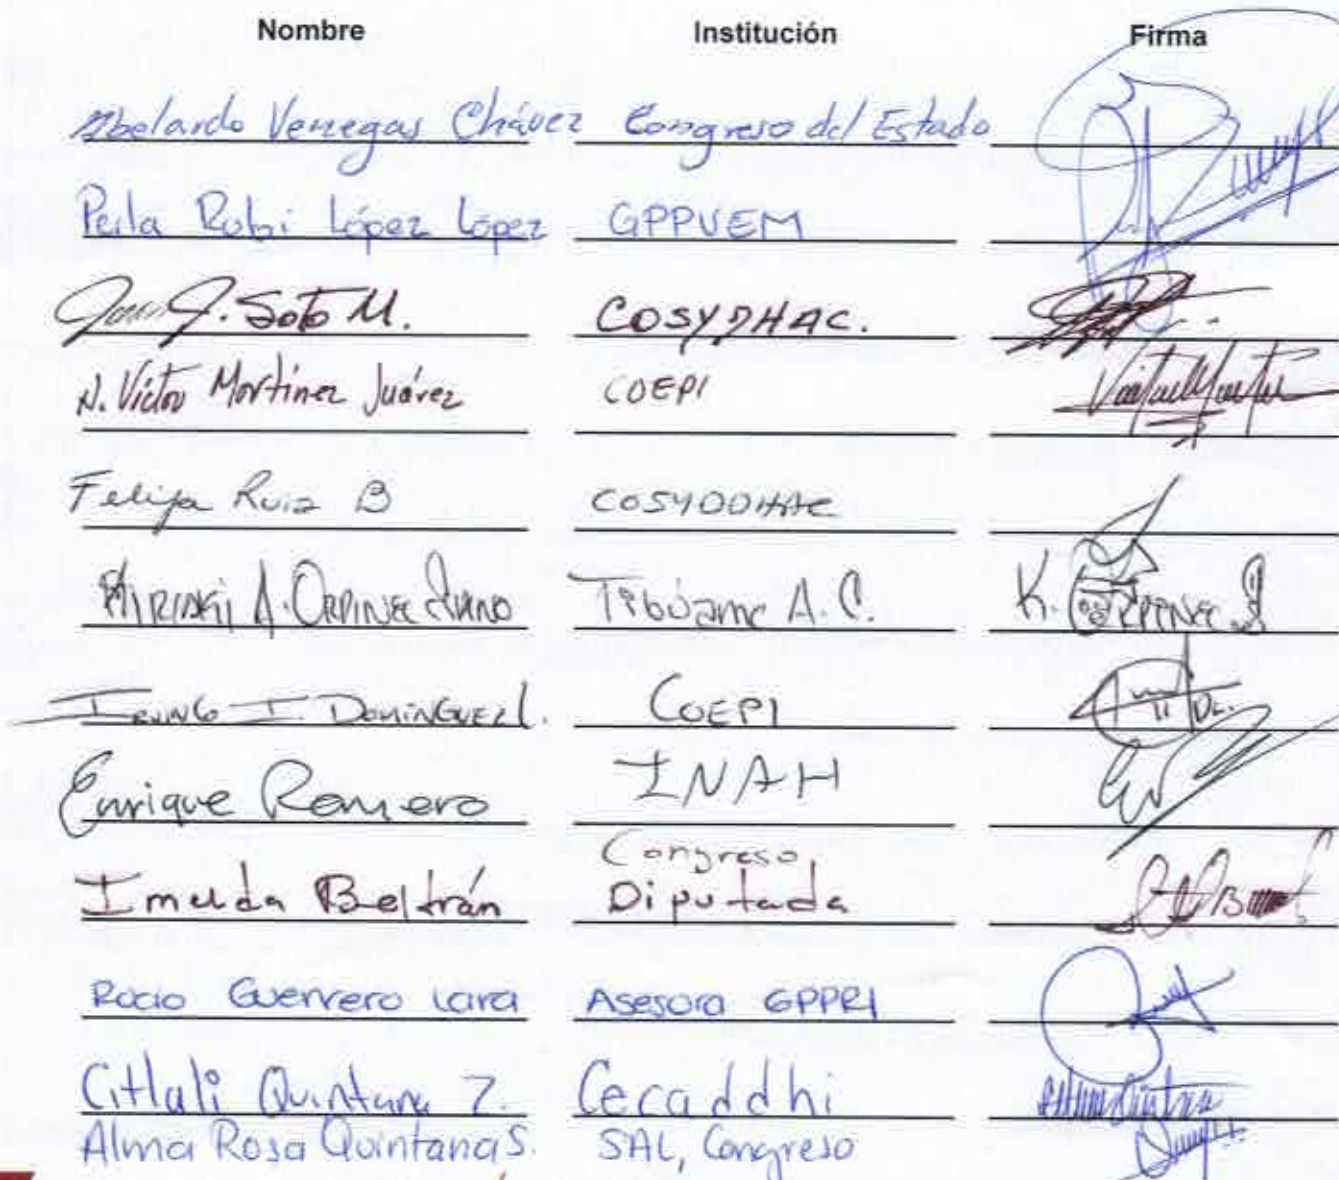 Nombre Institución Firma
Abelardo Venegas Chávez Congreso del Estado
Perla Rubi López López GPPVEM
J. Soto M. COSYDHAC.
N. Víctor Martínez Juárez COEPI
Felipa Ruiz B COSYDDHAC
A. Orpinel Tibúame A.C. K. Orpinel
I. Domínguez L. COEPI
Enrique Romero INAH
Congreso
Imelda Beltrán Diputada
Rocio Guerrero Lara Asesora GPPRI
Citlali Quintana Z. Cecaddhi
Alma Rosa Quintana S. SAL, Congreso